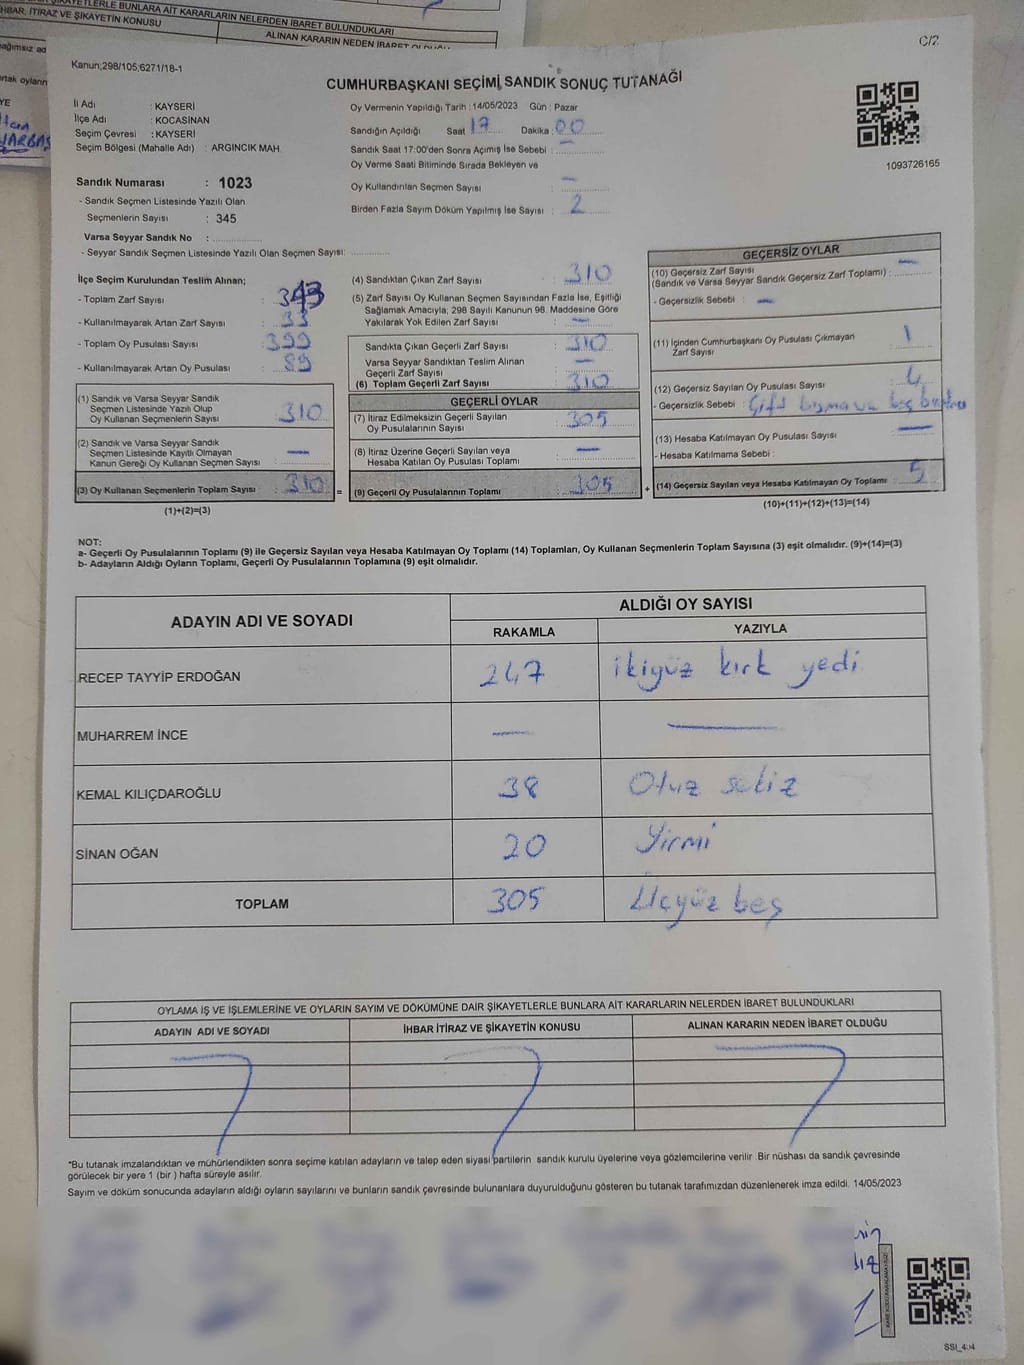 ŞİKAYETLERLE BUNLARA AİT KARARLARIN NELERDEN İBARET BULUNDUKLARI
İHBAR, İTİRAZ VE ŞİKAYETİN KONUSU
ALINAN KARARIN NEDEN İBARET OLDUĞU
C/2
Kanun;298/105;6271/18-1
CUMHURBAŞKANI SEÇİMİ SANDIK SONUÇ TUTANAĞI
İl Adı : KAYSERİ
İlçe Adı : KOCASİNAN
Seçim Çevresi : KAYSERİ
Seçim Bölgesi (Mahalle Adı) : ARGINCIK MAH.
Oy Vermenin Yapıldığı Tarih : 14/05/2023 Gün : Pazar
Sandığın Açıldığı Saat 17 Dakika : 00
Sandık Saat 17:00'den Sonra Açımış İse Sebebi : —
Oy Verme Saati Bitiminde Sırada Bekleyen ve
Oy Kullandırılan Seçmen Sayısı : —
Birden Fazla Sayım Döküm Yapılmış İse Sayısı : 2
1093726165
Sandık Numarası : 1023
- Sandık Seçmen Listesinde Yazılı Olan
Seçmenlerin Sayısı : 345
Varsa Seyyar Sandık No :
- Seyyar Sandık Seçmen Listesinde Yazılı Olan Seçmen Sayısı:
İlçe Seçim Kurulundan Teslim Alınan;
- Toplam Zarf Sayısı : 343
- Kullanılmayarak Artan Zarf Sayısı : 33
- Toplam Oy Pusulası Sayısı : 399
- Kullanılmayarak Artan Oy Pusulası : 89
(1) Sandık ve Varsa Seyyar Sandık
Seçmen Listesinde Yazılı Olup
Oy Kullanan Seçmenlerin Sayısı : 310
(2) Sandık ve Varsa Seyyar Sandık
Seçmen Listesinde Kayıtlı Olmayan
Kanun Gereği Oy Kullanan Seçmen Sayısı : —
(3) Oy Kullanan Seçmenlerin Toplam Sayısı : 310 =
(1)+(2)=(3)
(4) Sandıktan Çıkan Zarf Sayısı : 310
(5) Zarf Sayısı Oy Kullanan Seçmen Sayısından Fazla İse, Eşitliği
Sağlamak Amacıyla; 298 Sayılı Kanunun 98. Maddesine Göre
Yakılarak Yok Edilen Zarf Sayısı : —
Sandıkta Çıkan Geçerli Zarf Sayısı : 310
Varsa Seyyar Sandıktan Teslim Alınan
Geçerli Zarf Sayısı : —
(6) Toplam Geçerli Zarf Sayısı : 310
GEÇERLİ OYLAR
(7) İtiraz Edilmeksizin Geçerli Sayılan
Oy Pusulalarının Sayısı : 305
(8) İtiraz Üzerine Geçerli Sayılan veya
Hesaba Katılan Oy Pusulası Toplamı : —
(9) Geçerli Oy Pusulalarının Toplamı : 305 +
GEÇERSİZ OYLAR
(10) Geçersiz Zarf Sayısı
(Sandık ve Varsa Seyyar Sandık Geçersiz Zarf Toplamı) : —
- Geçersizlik Sebebi : —
(11) İçinden Cumhurbaşkanı Oy Pusulası Çıkmayan
Zarf Sayısı : 1
(12) Geçersiz Sayılan Oy Pusulası Sayısı : 4
- Geçersizlik Sebebi : Çift basma ve boş
(13) Hesaba Katılmayan Oy Pusulası Sayısı : —
- Hesaba Katılmama Sebebi :
(14) Geçersiz Sayılan veya Hesaba Katılmayan Oy Toplamı : 5
(10)+(11)+(12)+(13)=(14)
NOT:
a- Geçerli Oy Pusulalarının Toplamı (9) ile Geçersiz Sayılan veya Hesaba Katılmayan Oy Toplamı (14) Toplamları, Oy Kullanan Seçmenlerin Toplam Sayısına (3) eşit olmalıdır. (9)+(14)=(3)
b- Adayların Aldığı Oyların Toplamı, Geçerli Oy Pusulalarının Toplamına (9) eşit olmalıdır.
ADAYIN ADI VE SOYADI
ALDIĞI OY SAYISI
RAKAMLA YAZIYLA
RECEP TAYYİP ERDOĞAN 247 ikiyüz kırk yedi
MUHARREM İNCE — —
KEMAL KILIÇDAROĞLU 38 Otuz sekiz
SİNAN OĞAN 20 Yirmi
TOPLAM 305 Üçyüz beş
OYLAMA İŞ VE İŞLEMLERİNE VE OYLARIN SAYIM VE DÖKÜMÜNE DAİR ŞİKAYETLERLE BUNLARA AİT KARARLARIN NELERDEN İBARET BULUNDUKLARI
ADAYIN ADI VE SOYADI İHBAR İTİRAZ VE ŞİKAYETİN KONUSU ALINAN KARARIN NEDEN İBARET OLDUĞU
*Bu tutanak imzalandıktan ve mühürlendikten sonra seçime katılan adayların ve talep eden siyasi partilerin sandık kurulu üyelerine veya gözlemcilerine verilir. Bir nüshası da sandık çevresinde
görülecek bir yere 1 (bir ) hafta süreyle asılır.
Sayım ve döküm sonucunda adayların aldığı oyların sayılarını ve bunların sandık çevresinde bulunanlara duyurulduğunu gösteren bu tutanak tarafımızdan düzenlenerek imza edildi. 14/05/2023